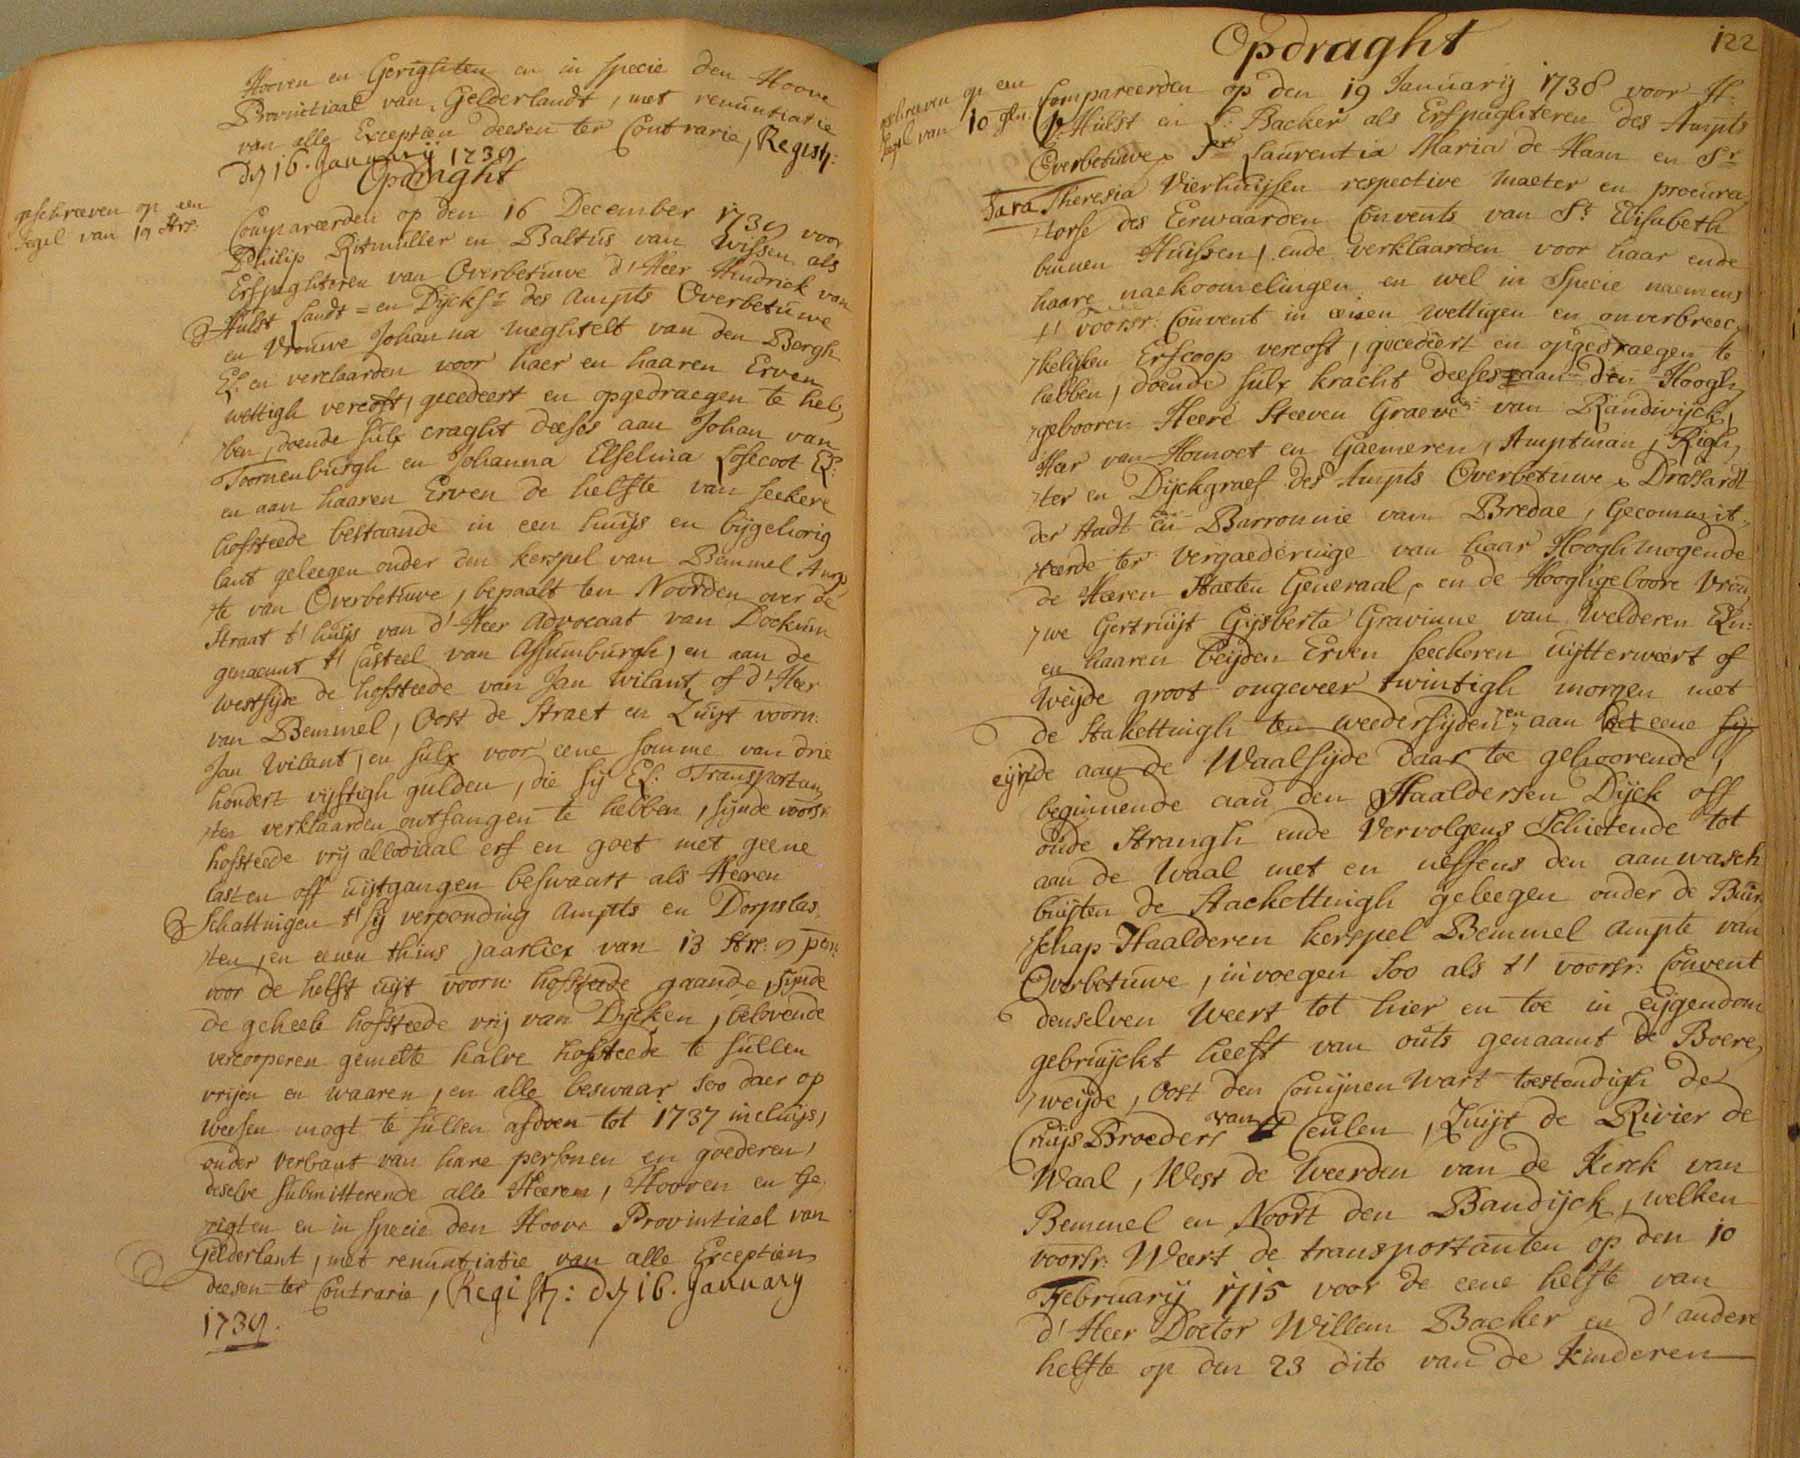 Hoven en Gerighten en in specie den Hoove
Provintiaal van Gelderlandt, met renuntiatie
van alle Exceptien deesen ter Contrarie, Regist:
d 16. January 1739
Opdraght
geschreeven op een
segel van 10 str:
Compareerden op den 16 December 1739 voor
Philip Ritmuller en Baltus van Wissen als
Erfpaghteren van Overbetuwe d' Heer Hendrick van
Hulst Landt = en Dijckschr: des Ampts Overbetuwe
en Vrouwe Johanna Meghtelt van den Bergh
El: en verclaarden voor haer en haaren Erven
wettigh vercoft, gecedeert en opgedraegen te heb,
,ben, doende sulx craght deeses aan Johan van
Toornenburgh en Johanna Elselina Losecoot El:
en aan haaren Erven de helfte van seekere
hofsteede bestaande in een huijs en bijgehorig
lant geleegen onder den kerspel van Bemmel Amp
,te van Overbetuwe, bepaalt ten Noorden over de
Straat t' huijs van d' Heer Advocaat van Dockum
genaemt t' Casteel van Assumburgh, en aan de
westsijde de hofsteede van Jan Wilant of d' Heer
van Bemmel, Oost de Straet en Zuijt voorn:
Jan Wilant, en sulx voor eene somme van drie
hondert vijftigh gulden, die sij El: Transportan
,ten verklaarden ontfangen te hebben, sijnde voorsr:
hofsteede vrij allodiaal erf en goet met geene
lasten off uijtgangen beswaart als Heeren
Schattingen t' sij verponding Ampts en Dorpslas,
,ten, en eenen thins jaarlicx van 13 str: 9 pen:
voor de helft uijt voorn: hofsteede gaande, sijnde
de geheele hofsteede vrij van Dijcken, belovende
vercooperen gemelte halve hofsteede te sullen
vrijen en waaren, en alle beswaar soo daer op
weesen mogt te sullen afdoen tot 1737 incluijs,
onder verbant van hare personen en goederen,
deselve submitterende alle Heeren, Hooven en Ge,
,rigten en in specie den Hoove Provintiael van
Gelderlant, met renuntiatie van alle Exceptien
deesen ter Contrarie, Regist: d 16. January
1739.
Opdraght
122
geschreeven op een
segel van 10 gln:
Compareerden op den 19 Januarij 1738 voor H:
Hulst en L: Backer als Erfpaghteren des Ampts
Overbetuwe, Sr Laurentia Maria de Haan en Sr
Sara Theresia Vierhuijsen respective maeter en procura
,torse des Eerwaarden Convents van St Elisabeth
binnen Huijssen, ende verklaarden voor haar ende
haare naekoomelingen en wel in Specie naemens
t' voorsr: Convent in eenen wettigen en onverbreec,
,kelijken Erfcoop vercoft, gecedeert en opgedraegen te
hebben, doende sulx kracht deeses aan den Hoogh,
,gebooren Heere Steeven Graeve van Randwijck,
Heer van Homoet en Gaemeren, Amptman, Righ,
,ter en Dijckgraef des Ampts Overbetuwe, Drossardt
der stadt en Barronnie van Bredae, Gecommit,
,teerde ter vergaederinge van haar Hooghmogende
de Heeren Staeten Generaal, en de Hooghgeboore Vrou
,we Gertruijt Gijsberta Gravinne van Welderen El:
en haaren beijden Erven seeckeren uijtterweert of
Weijde groot ongeveer twintigh morgen met
de Stakettingh ten weedersijden en aan het eene sij
eijnde aan de Waalsijde daar toe gehoorende,
beginnende aan den Haaldersen Dijck off
oude Strangh ende vervolgens Schietende tot
aan de Waal met en neffens den aanwasch
buijten de Stackettingh geleegen onder de Buur
,schap Haalderen kerspel Bemmel Ampte van
Overbetuwe, invoegen soo als t' voorsr: Convent
denselven Weert tot hier en toe in eijgendom
gebruijckt heeft van outs genaamt de Boere,
,weijde, Oost den Conijnen Wart toestendigh de
Cruijs Broeders van Ceulen, Zuijt de Rivier de
Waal, West de Weerden van de Kerck van
Bemmel en Noort den Bandijck, welken
voorsr: Weert de transportanten op den 10
February 1715 voor de eene helfte van
d' Heer Doctor Willem Backer en d' andere
helfte op den 23 dito van de kinderen